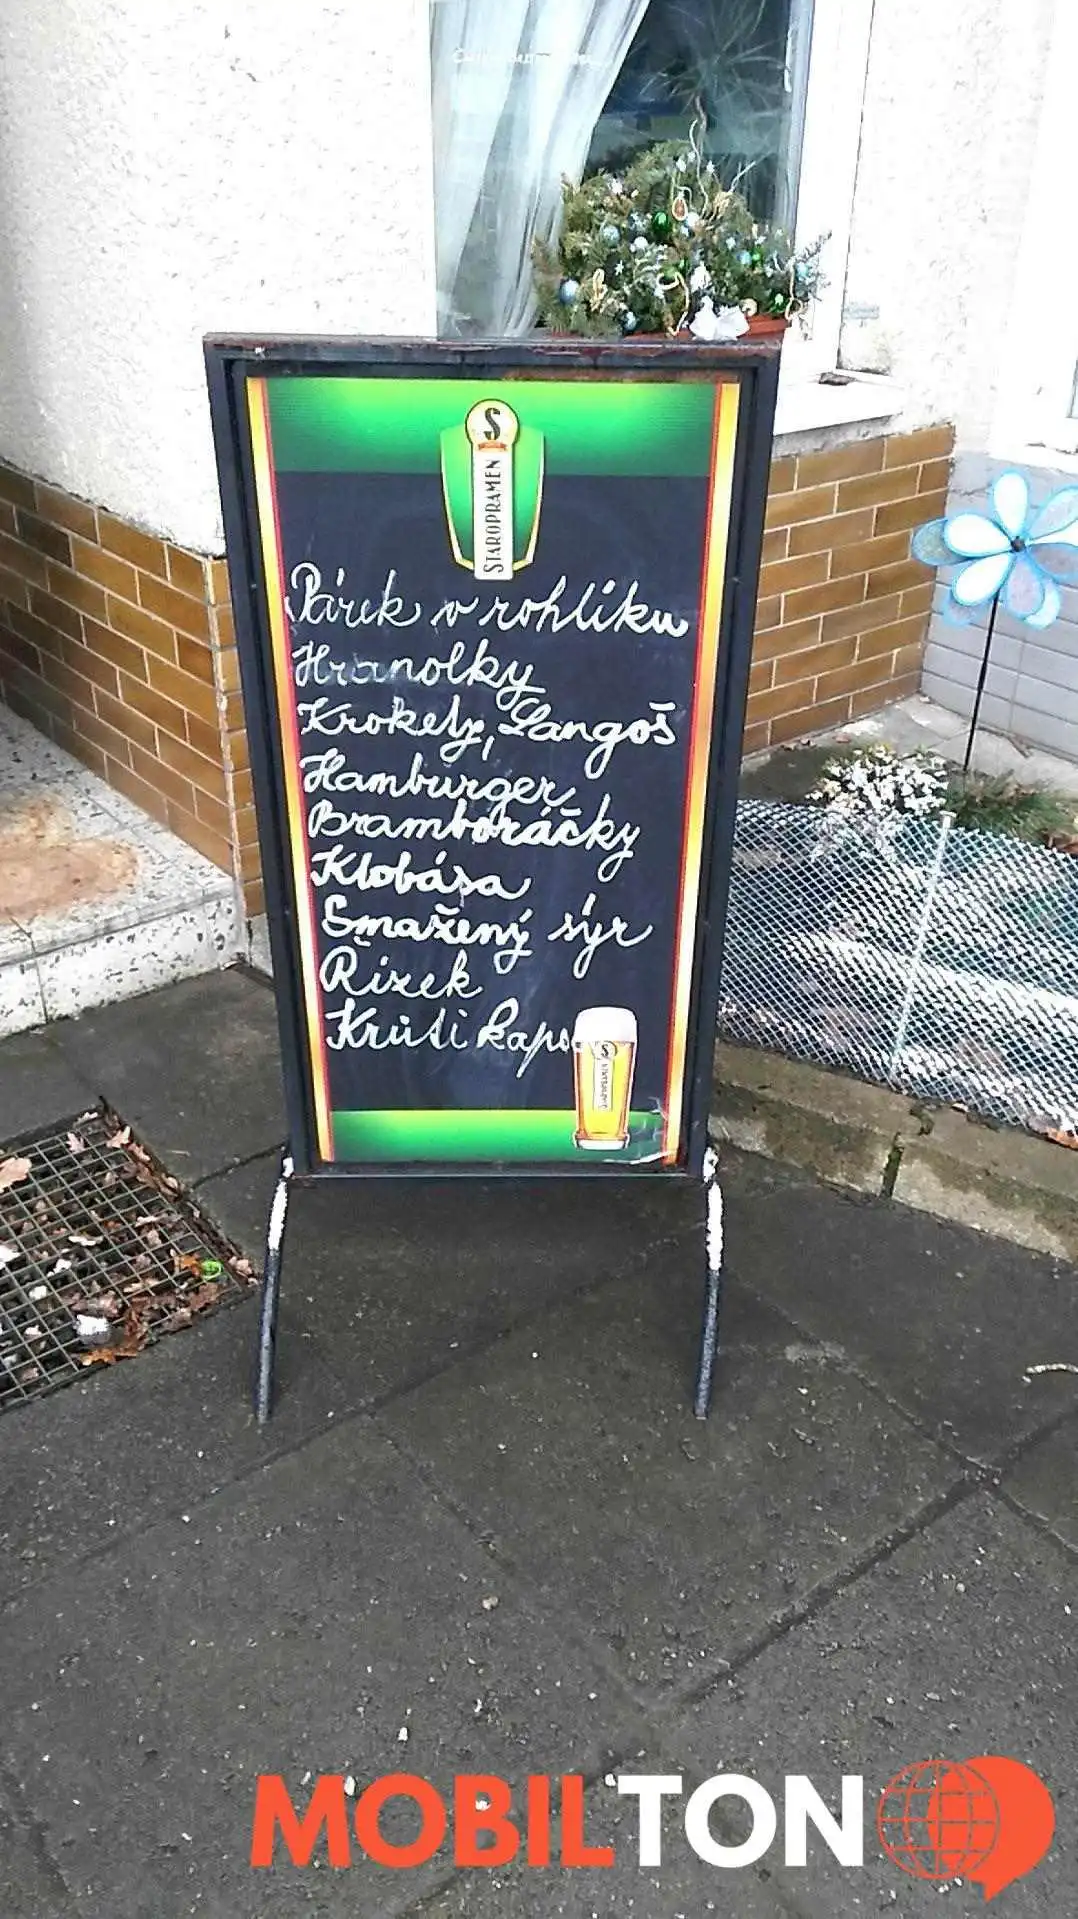 STAROPRAMEN
Párek v rohlíku
Hranolky
Krokety, Langoš
Hamburger
Bramboráčky
Klobása
Smažený sýr
Řízek
Krůtí kapo
STAROPRAMEN
MOBILTON